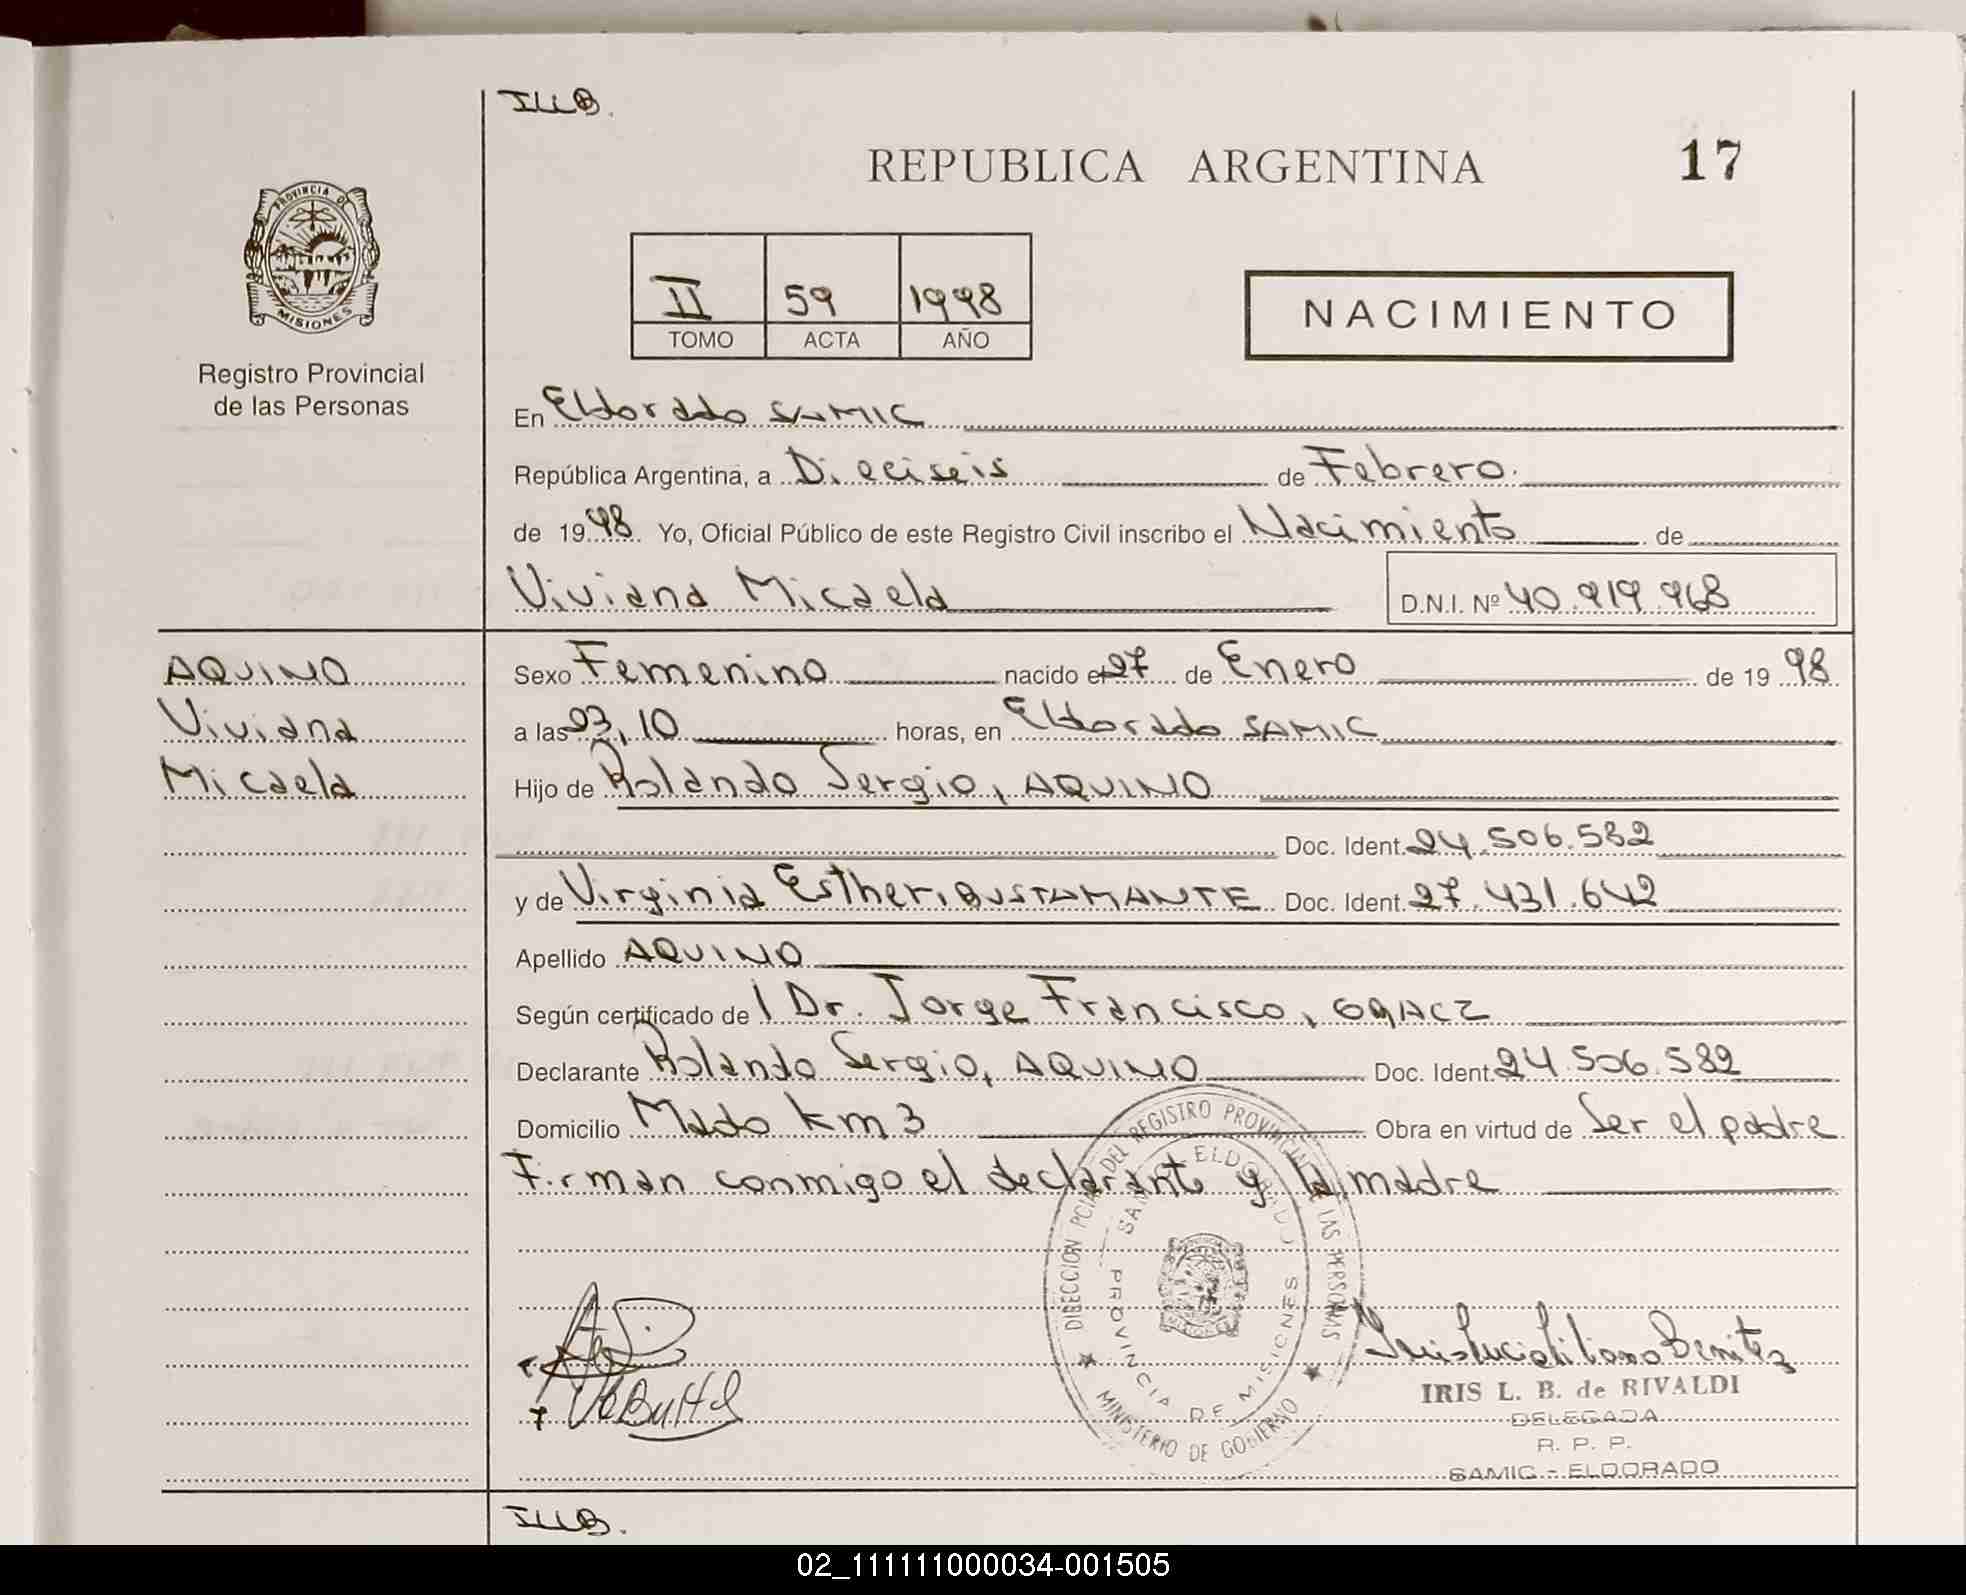 ILLB.
REPUBLICA ARGENTINA 17
PROVINCIA DE
MISIONES
Registro Provincial
de las Personas
II 59 1998
TOMO ACTA AÑO
NACIMIENTO
En Eldorado SAMIC
República Argentina, a Dieciseis de Febrero.
de 1998 Yo, Oficial Público de este Registro Civil inscribo el Nacimiento de
Viviana Micaela D.N.I. Nº 40.919.968
AQUINO
Viviana
Micaela
Sexo Femenino nacido el 27 de Enero de 1998
a las 23,10 horas, en Eldorado SAMIC
Hijo de Rolando Sergio, AQUINO
Doc. Ident. 24.506.582
y de Virginia Esther, BUSTAMANTE Doc. Ident. 27.431.642
Apellido AQUINO
Según certificado de l Dr. Jorge Francisco,
Declarante Rolando Sergio, AQUINO Doc. Ident. 24.506.582
Domicilio Mado km 3 Obra en virtud de Ser el padre
Firman conmigo el declarante y la madre
DIRECCION PCIAL. DEL REGISTRO PROVINCIAL DE LAS PERSONAS
SAMIC ELDORADO
PROVINCIA DE MISIONES
MINISTERIO DE GOBIERNO
Iris Lucia Liliana Benitez
IRIS L. B. de RIVALDI
DELEGADA
R. P. P.
SAMIC - ELDORADO
ILLB.
02_111111000034-001505